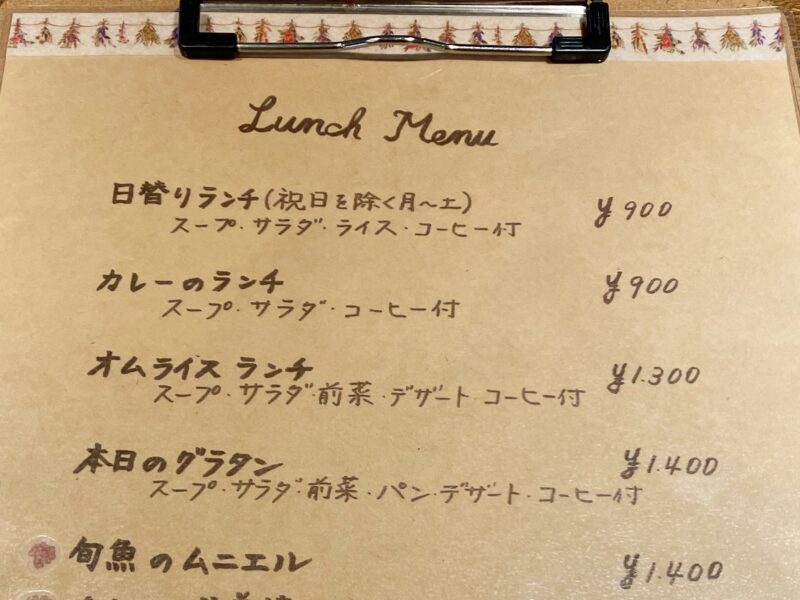 Lunch Menu
日替りランチ(祝日を除く月～土) ¥900
スープ・サラダ・ライス・コーヒー付
カレーのランチ ¥900
スープ・サラダ・コーヒー付
オムライス ランチ ¥1.300
スープ・サラダ・前菜・デザート・コーヒー付
本日のグラタン ¥1.400
スープ・サラダ・前菜・パン・デザート・コーヒー付
旬魚のムニエル ¥1.400